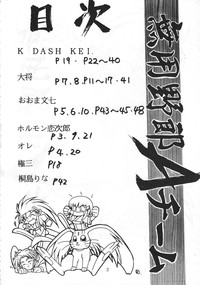 無用野郎Aチーム
目次
K DASH KEI.
P19・P22〜40
大将
P7.8.P11〜17・41
おおま文七
P5.6.10.P43〜45・48
ホルモン恋次郎
P3.9.21
オレ
P4.20
権三
P18
桐島りな P42
2